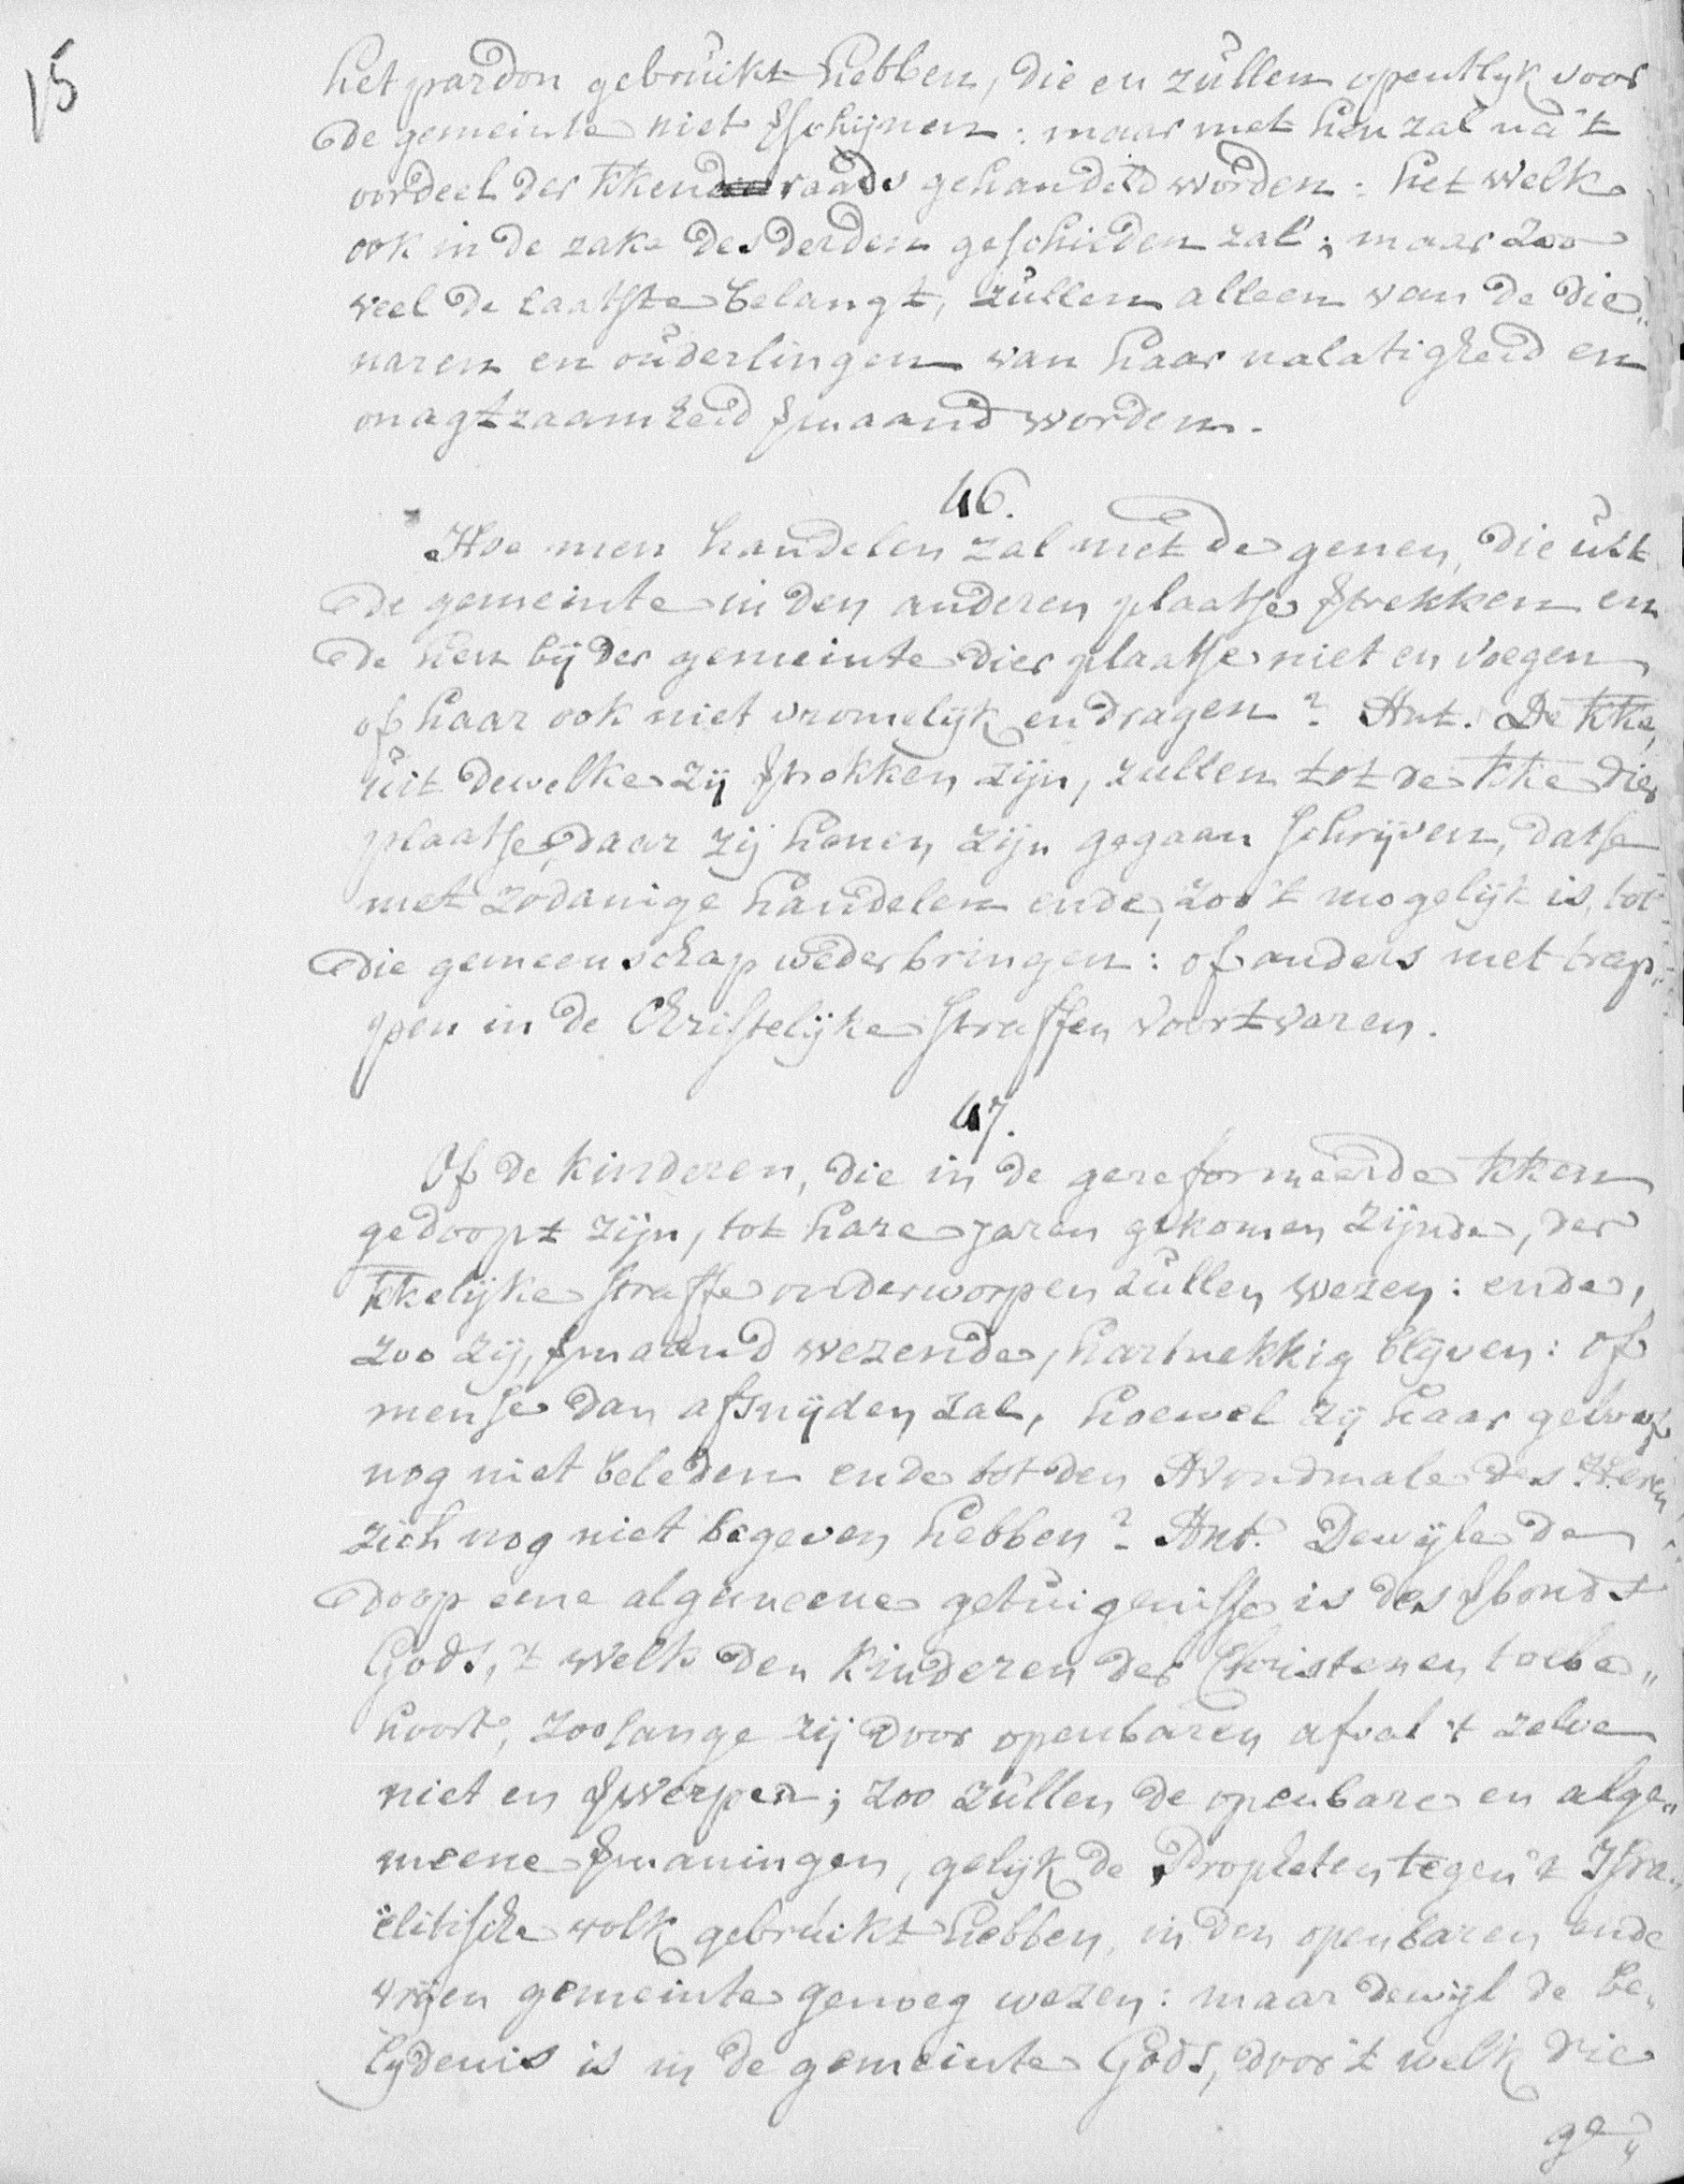 15
het pardon gebruikt hebben, die en zullen opentlyk voor
de gemeinte niet ſchijnen: maar met hen zal na 't
oordeel der kkenraads gehandeld worden: het welk
ook in de zake des derden geſchieden zal; maar zoo
veel de laatſte belangt, zullen alleen van de die„
naren en ouderlingen van haar nalatigheid en
onagtzaamheid ꝟmaand worden.
46.
Hoe men handelen zal met de genen, die uit
de gemeinte in den anderen plaatſe ꝟtrekken en
de hen bij der gemeinte dier plaatſe niet en voegen
of haar ook niet vromelijk en dragen? Ant. De kke,
uit dewelke zij ꝟtrokken zijn, zullen tot de kke dier
plaatſe, daar zij henen zijn gegaan ſchrijven, datſe
met zodanige handelen ende, zoo 't mogelijk is, tot
die gemeenschap wederbringen: of anders met trap„
pen in de Chriſtelijke ſtraffen voortvaren.
47.
Of de kinderen, die in de gereformeerde kken
gedoopt zijn, tot hare jaren gekomen zijnde, der
kkelijke ſtraffe onderworpen zullen wezen: ende,
zoo zij, ꝟmaand wezende, hartnekkig blijven: of
menſe dan afsnijden zal, hoewel zij haar geloof
nog niet beleden ende tot den Avondmale des Heren
zich nog niet begeven hebben? Ant. Dewijle de
doop eene algemeene getuigeniſſe is des ꝟbonds
Gods, 't welk den kinderen der Christenen toebe„
hoort, zoolange zij door openbaren afval 't zelve
niet en ꝟwerpen; zoo zullen de openbare en alge„
meene ꝟmaningen, gelijk de Propheten tegen 't Iſra„
ëlitiſche volk gebruikt hebben, in den openbaren ende
vrijen gemeinte genoeg wezen: maar dewijl de be„
lydenis is in de gemeinte Gods, door 't welk die
ge„